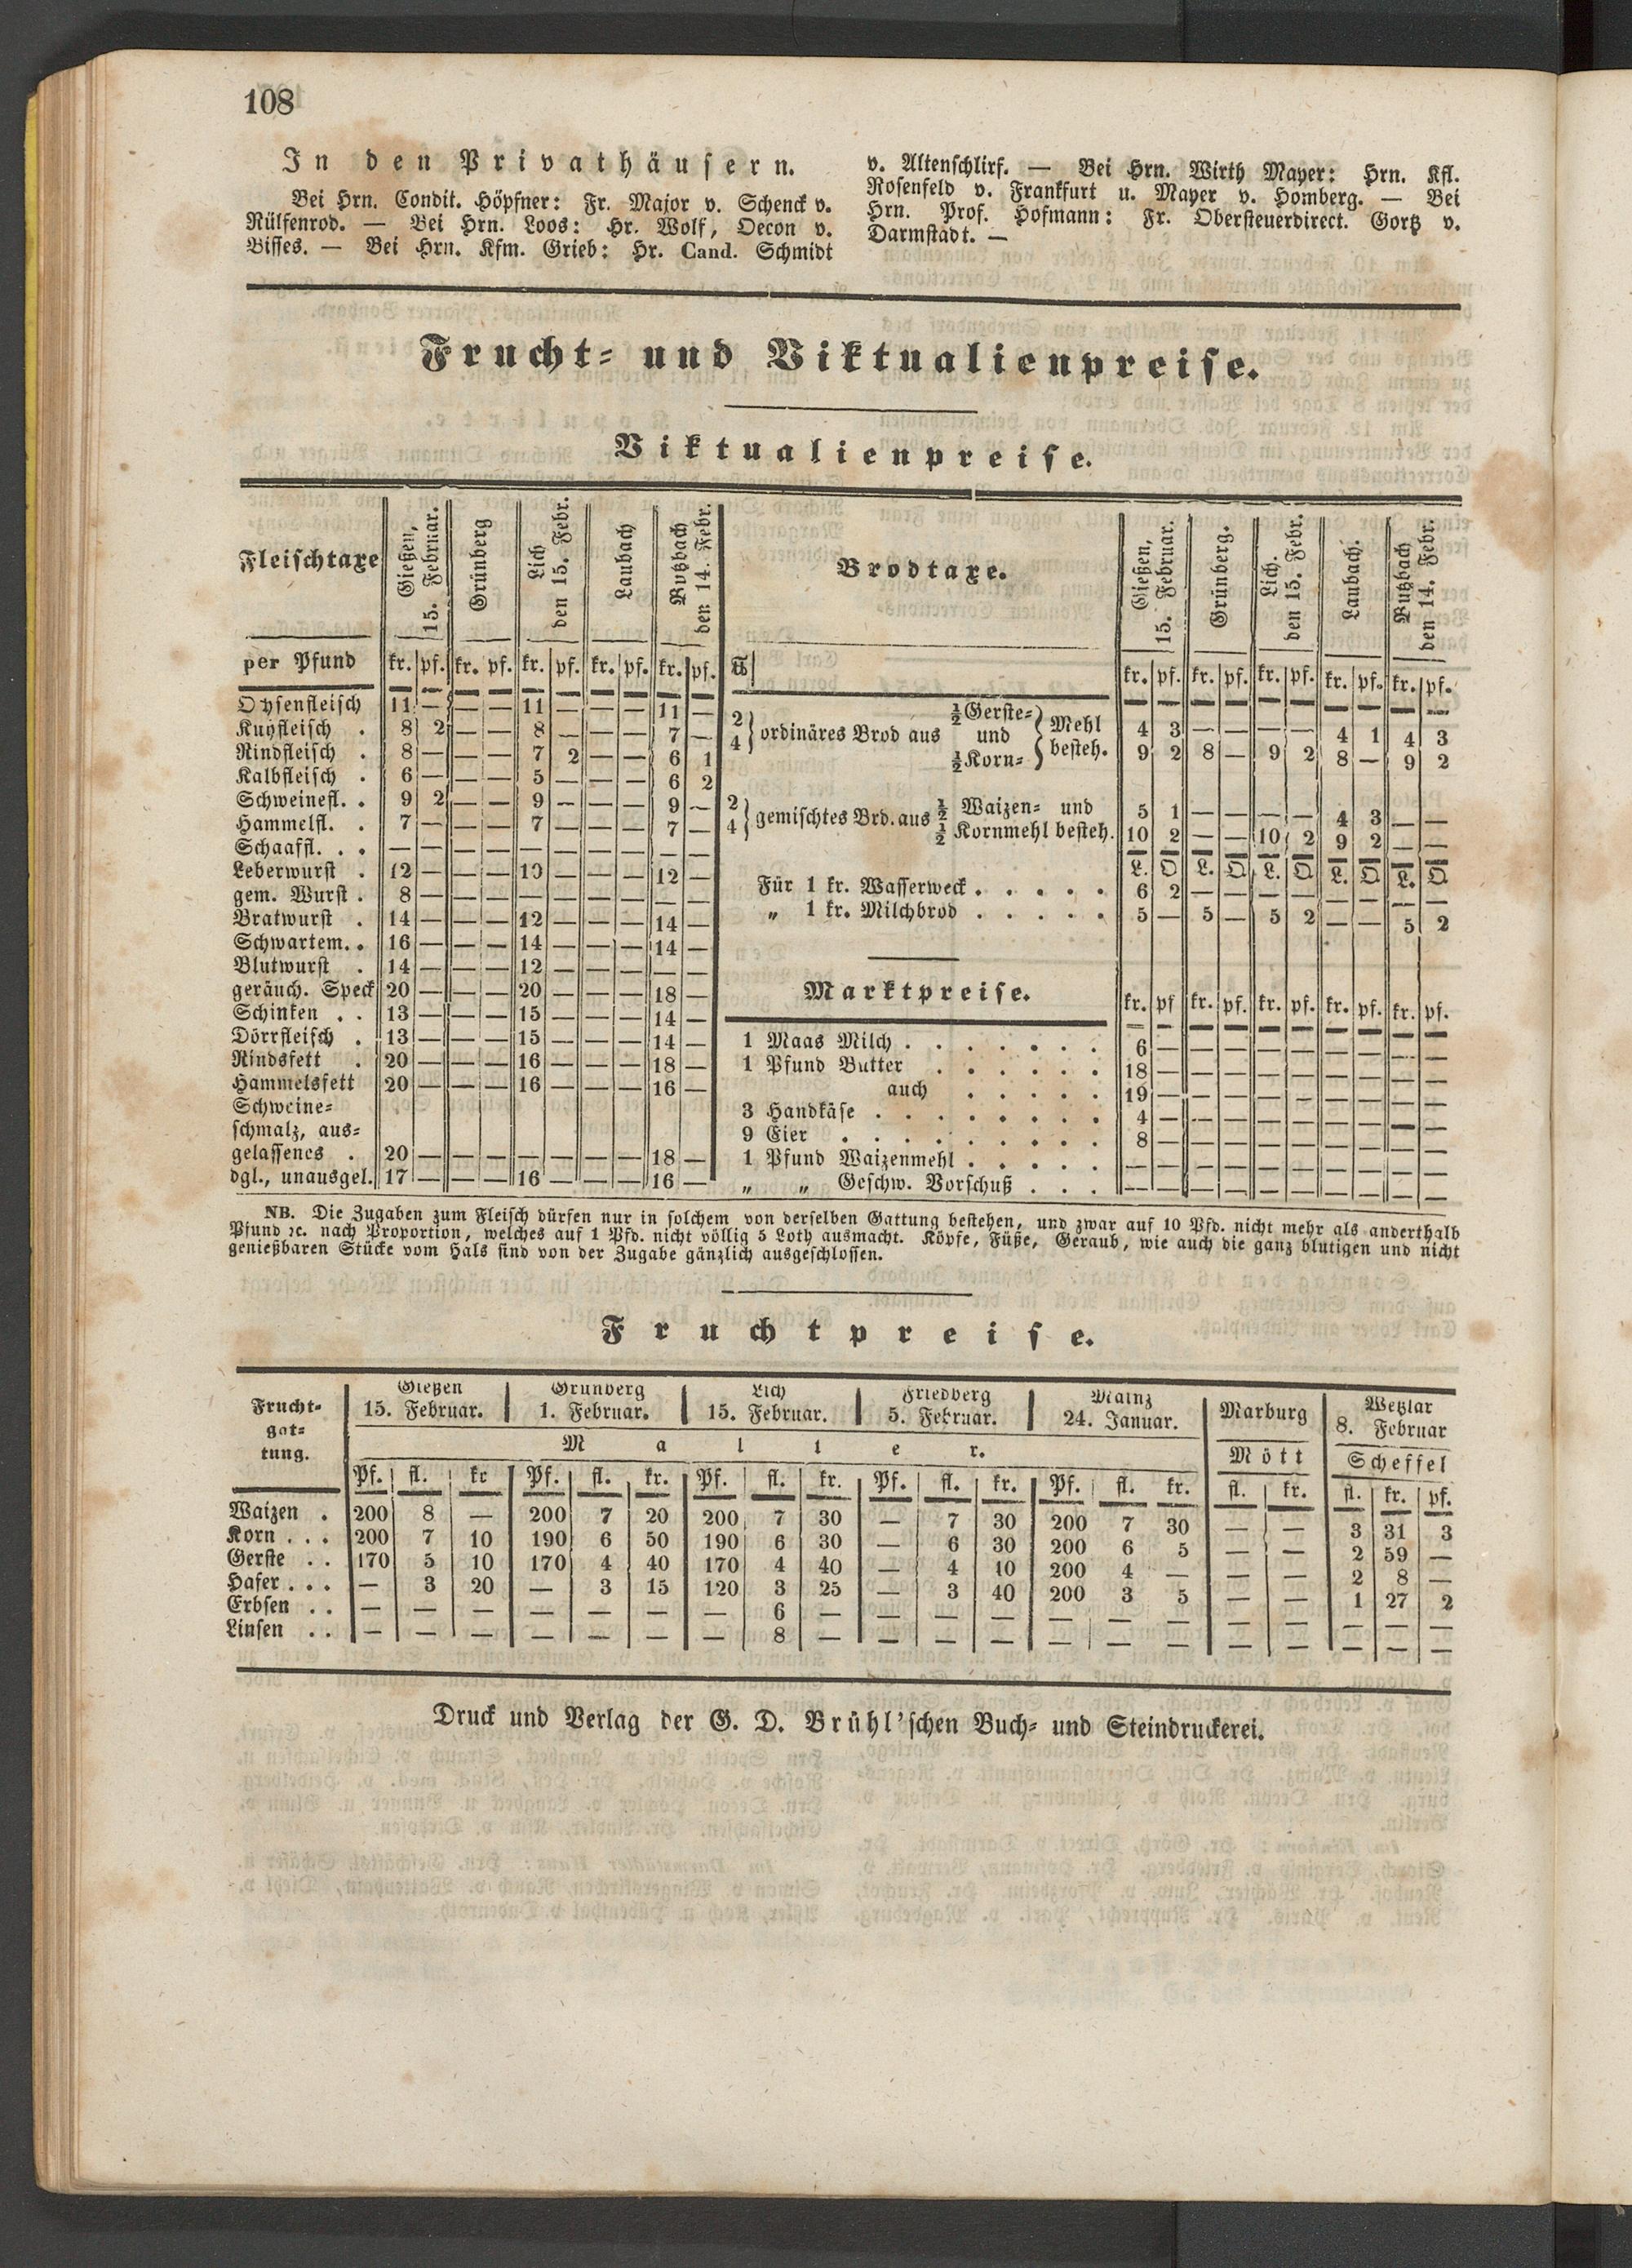 108
In den Privathäusern.
Bei Hrn. Condit. Höpfner: Fr. Major v. Schenck v.
Nülfenrod. — Bei Hrn. Loos: Hr. Wolf, Oecon v.
Bisses. — Bei Hrn. Kfm. Grieb: Hr. Cand. Schmidt
v. Altenschlirf. — Bei Hrn. Wirth Mayer: Hrn. Kfl.
Rosenfeld v. Frankfurt u. Mayer v. Homberg. — Bei
Hrn. Prof. Hofmann: Fr. Obersteuerdirect. Gortz v.
Darmstadt. —
Frucht- und Viktualienpreise.
Viktualienpreise.
Fleischtaxe | Gießen, 15. Februar. | Grünberg | Lich den 15. Febr. | Laubach | Butzbach den 14. Febr.
per Pfund | kr. | pf. | kr. | pf. | kr. | pf. | kr. | pf. | kr. | pf.
Ochsenfleisch | 11 | — | — | — | 11 | — | — | — | 11 | —
Kuhfleisch . | 8 | 2 | — | — | 8 | — | — | — | 7 | —
Rindfleisch . | 8 | — | — | — | 7 | 2 | — | — | 6 | 1
Kalbfleisch . | 6 | — | — | — | 5 | — | — | — | 6 | 2
Schweinefl. . | 9 | 2 | — | — | 9 | — | — | — | 9 | —
Hammelfl. . | 7 | — | — | — | 7 | — | — | — | 7 | —
Schaaffl. . . | — | — | — | — | — | — | — | — | — | —
Leberwurst . | 12 | — | — | — | 10 | — | — | — | 12 | —
gem. Wurst . | 8 | — | — | — | — | — | — | — | — | —
Bratwurst . | 14 | — | — | — | 12 | — | — | — | 14 | —
Schwartem. . | 16 | — | — | — | 14 | — | — | — | 14 | —
Blutwurst . | 14 | — | — | — | 12 | — | — | — | — | —
geräuch. Speck | 20 | — | — | — | 20 | — | — | — | 18 | —
Schinken . . | 13 | — | — | — | 15 | — | — | — | 14 | —
Dörrfleisch . | 13 | — | — | — | 15 | — | — | — | 14 | —
Rindsfett . | 20 | — | — | — | 16 | — | — | — | 18 | —
Hammelsfett | 20 | — | — | — | 16 | — | — | — | 16 | —
Schweine-
schmalz, aus-
gelassenes . | 20 | — | — | — | — | — | — | — | 18 | —
dgl., unausgel. | 17 | — | — | — | 16 | — | — | — | 16 | —
Brodtaxe. | Gießen, 15. Februar. | Grünberg. | Lich, den 15. Febr. | Laubach. | Butzbach den 14. Febr.
℔ | kr. | pf. | kr. | pf. | kr. | pf. | kr. | pf. | kr. | pf.
2 } ordinäres Brod aus ½ Gerste- und ½ Korn- } Mehl besteh. | 4 | 3 | — | — | — | — | 4 | 1 | 4 | 3
4 | 9 | 2 | 8 | — | 9 | 2 | 8 | — | 9 | 2
2 } gemischtes Brd. aus ½ Waizen- und | 5 | 1 | — | — | — | — | 4 | 3 | — | —
4 ½ Kornmehl besteh. | 10 | 2 | — | — | 10 | 2 | 9 | 2 | — | —
L. | Q | L. | Q | L. | Q | L. | Q | L. | Q
Für 1 kr. Wasserweck . . . . . | 6 | 2 | — | — | — | — | — | — | — | —
„ 1 kr. Milchbrod . . . . . | 5 | — | 5 | — | 5 | 2 | — | — | 5 | 2
Marktpreise. | kr. | pf | kr. | pf. | kr. | pf. | kr. | pf. | kr. | pf.
1 Maas Milch . . . . . . . | 6 | — | — | — | — | — | — | — | — | —
1 Pfund Butter . . . . . . | 18 | — | — | — | — | — | — | — | — | —
auch . . . . . | 19 | — | — | — | — | — | — | — | — | —
3 Handkäse . . . . . . . . | 4 | — | — | — | — | — | — | — | — | —
9 Eier . . . . . . . . . | 8 | — | — | — | — | — | — | — | — | —
1 Pfund Waizenmehl . . . . . | — | — | — | — | — | — | — | — | — | —
„ „ Geschw. Vorschuß . . . | — | — | — | — | — | — | — | — | — | —
NB. Die Zugaben zum Fleisch dürfen nur in solchem von derselben Gattung bestehen, und zwar auf 10 Pfd. nicht mehr als anderthalb
Pfund ꝛc. nach Proportion, welches auf 1 Pfd. nicht völlig 5 Loth ausmacht. Köpfe, Füße, Geraub, wie auch die ganz blutigen und nicht
genießbaren Stücke vom Hals sind von der Zugabe gänzlich ausgeschlossen.
Fruchtpreise.
Frucht-gat-tung. | Gießen 15. Februar. | Grünberg 1. Februar. | Lich 15. Februar. | Friedberg 5. Februar. | Mainz 24. Januar. | Marburg | Wetzlar 8. Februar
Malter. | Mött | Scheffel
Pf. | fl. | kr | Pf. | fl. | kr. | Pf. | fl. | kr. | Pf. | fl. | kr. | Pf. | fl. | kr. | fl. | kr. | fl. | kr. | pf.
Waizen . | 200 | 8 | — | 200 | 7 | 20 | 200 | 7 | 30 | — | 7 | 30 | 200 | 7 | 30 | — | — | 3 | 31 | 3
Korn . . . | 200 | 7 | 10 | 190 | 6 | 50 | 190 | 6 | 30 | — | 6 | 30 | 200 | 6 | 5 | — | — | 2 | 59 | —
Gerste . . | 170 | 5 | 10 | 170 | 4 | 40 | 170 | 4 | 40 | — | 4 | 10 | 200 | 4 | — | — | — | 2 | 8 | —
Hafer . . . | — | 3 | 20 | — | 3 | 15 | 120 | 3 | 25 | — | 3 | 40 | 200 | 3 | 5 | — | — | 1 | 27 | 2
Erbsen . . | — | — | — | — | — | — | — | 6 | — | — | — | — | — | — | — | — | — | — | — | —
Linsen . . | — | — | — | — | — | — | — | 8 | — | — | — | — | — | — | — | — | — | — | — | —
Druck und Verlag der G. D. Brühl'schen Buch- und Steindruckerei.